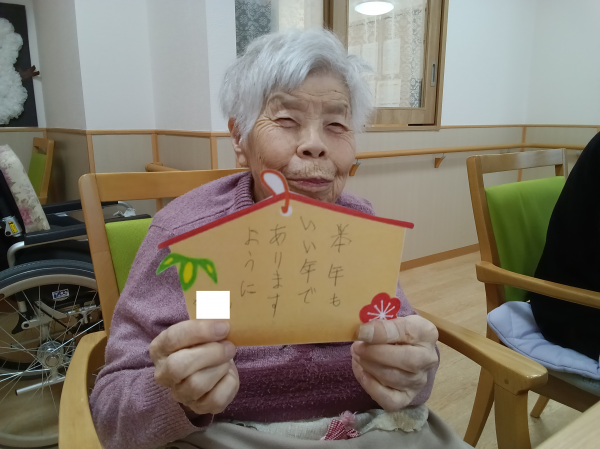 本年も
いい年で
あります
ように